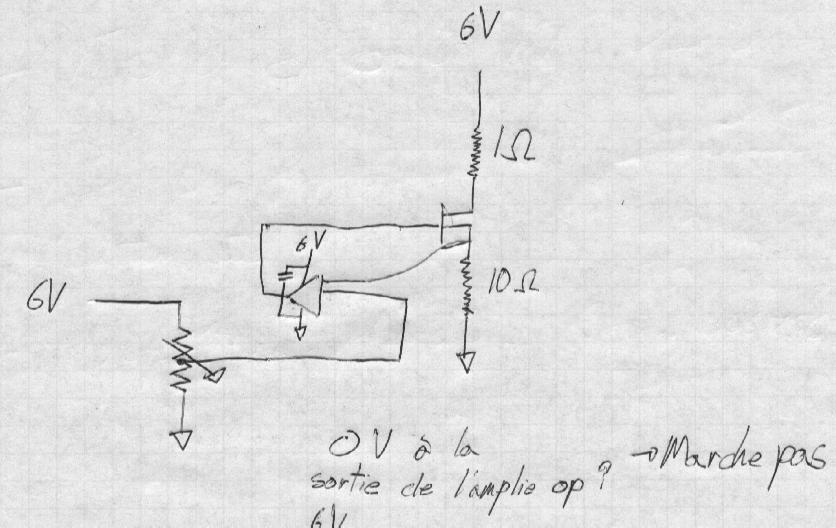 6V
1Ω
6V
10Ω
6V
0 V à la
sortie de l'amplie op? → Marche pas
6V